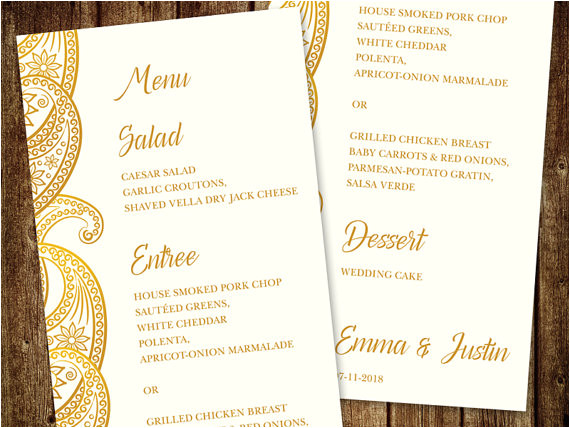 Menu
Salad
CAESAR SALAD
GARLIC CROUTONS,
SHAVED VELLA DRY JACK CHEESE
Entree
HOUSE SMOKED PORK CHOP
SAUTÉED GREENS,
WHITE CHEDDAR
POLENTA,
APRICOT-ONION MARMALADE
OR
GRILLED CHICKEN BREAST
BABY CARROTS & RED ONIONS,
HOUSE SMOKED PORK CHOP
SAUTÉED GREENS,
WHITE CHEDDAR
POLENTA,
APRICOT-ONION MARMALADE
OR
GRILLED CHICKEN BREAST
BABY CARROTS & RED ONIONS,
PARMESAN-POTATO GRATIN,
SALSA VERDE
Dessert
WEDDING CAKE
Emma & Justin
7-11-2018